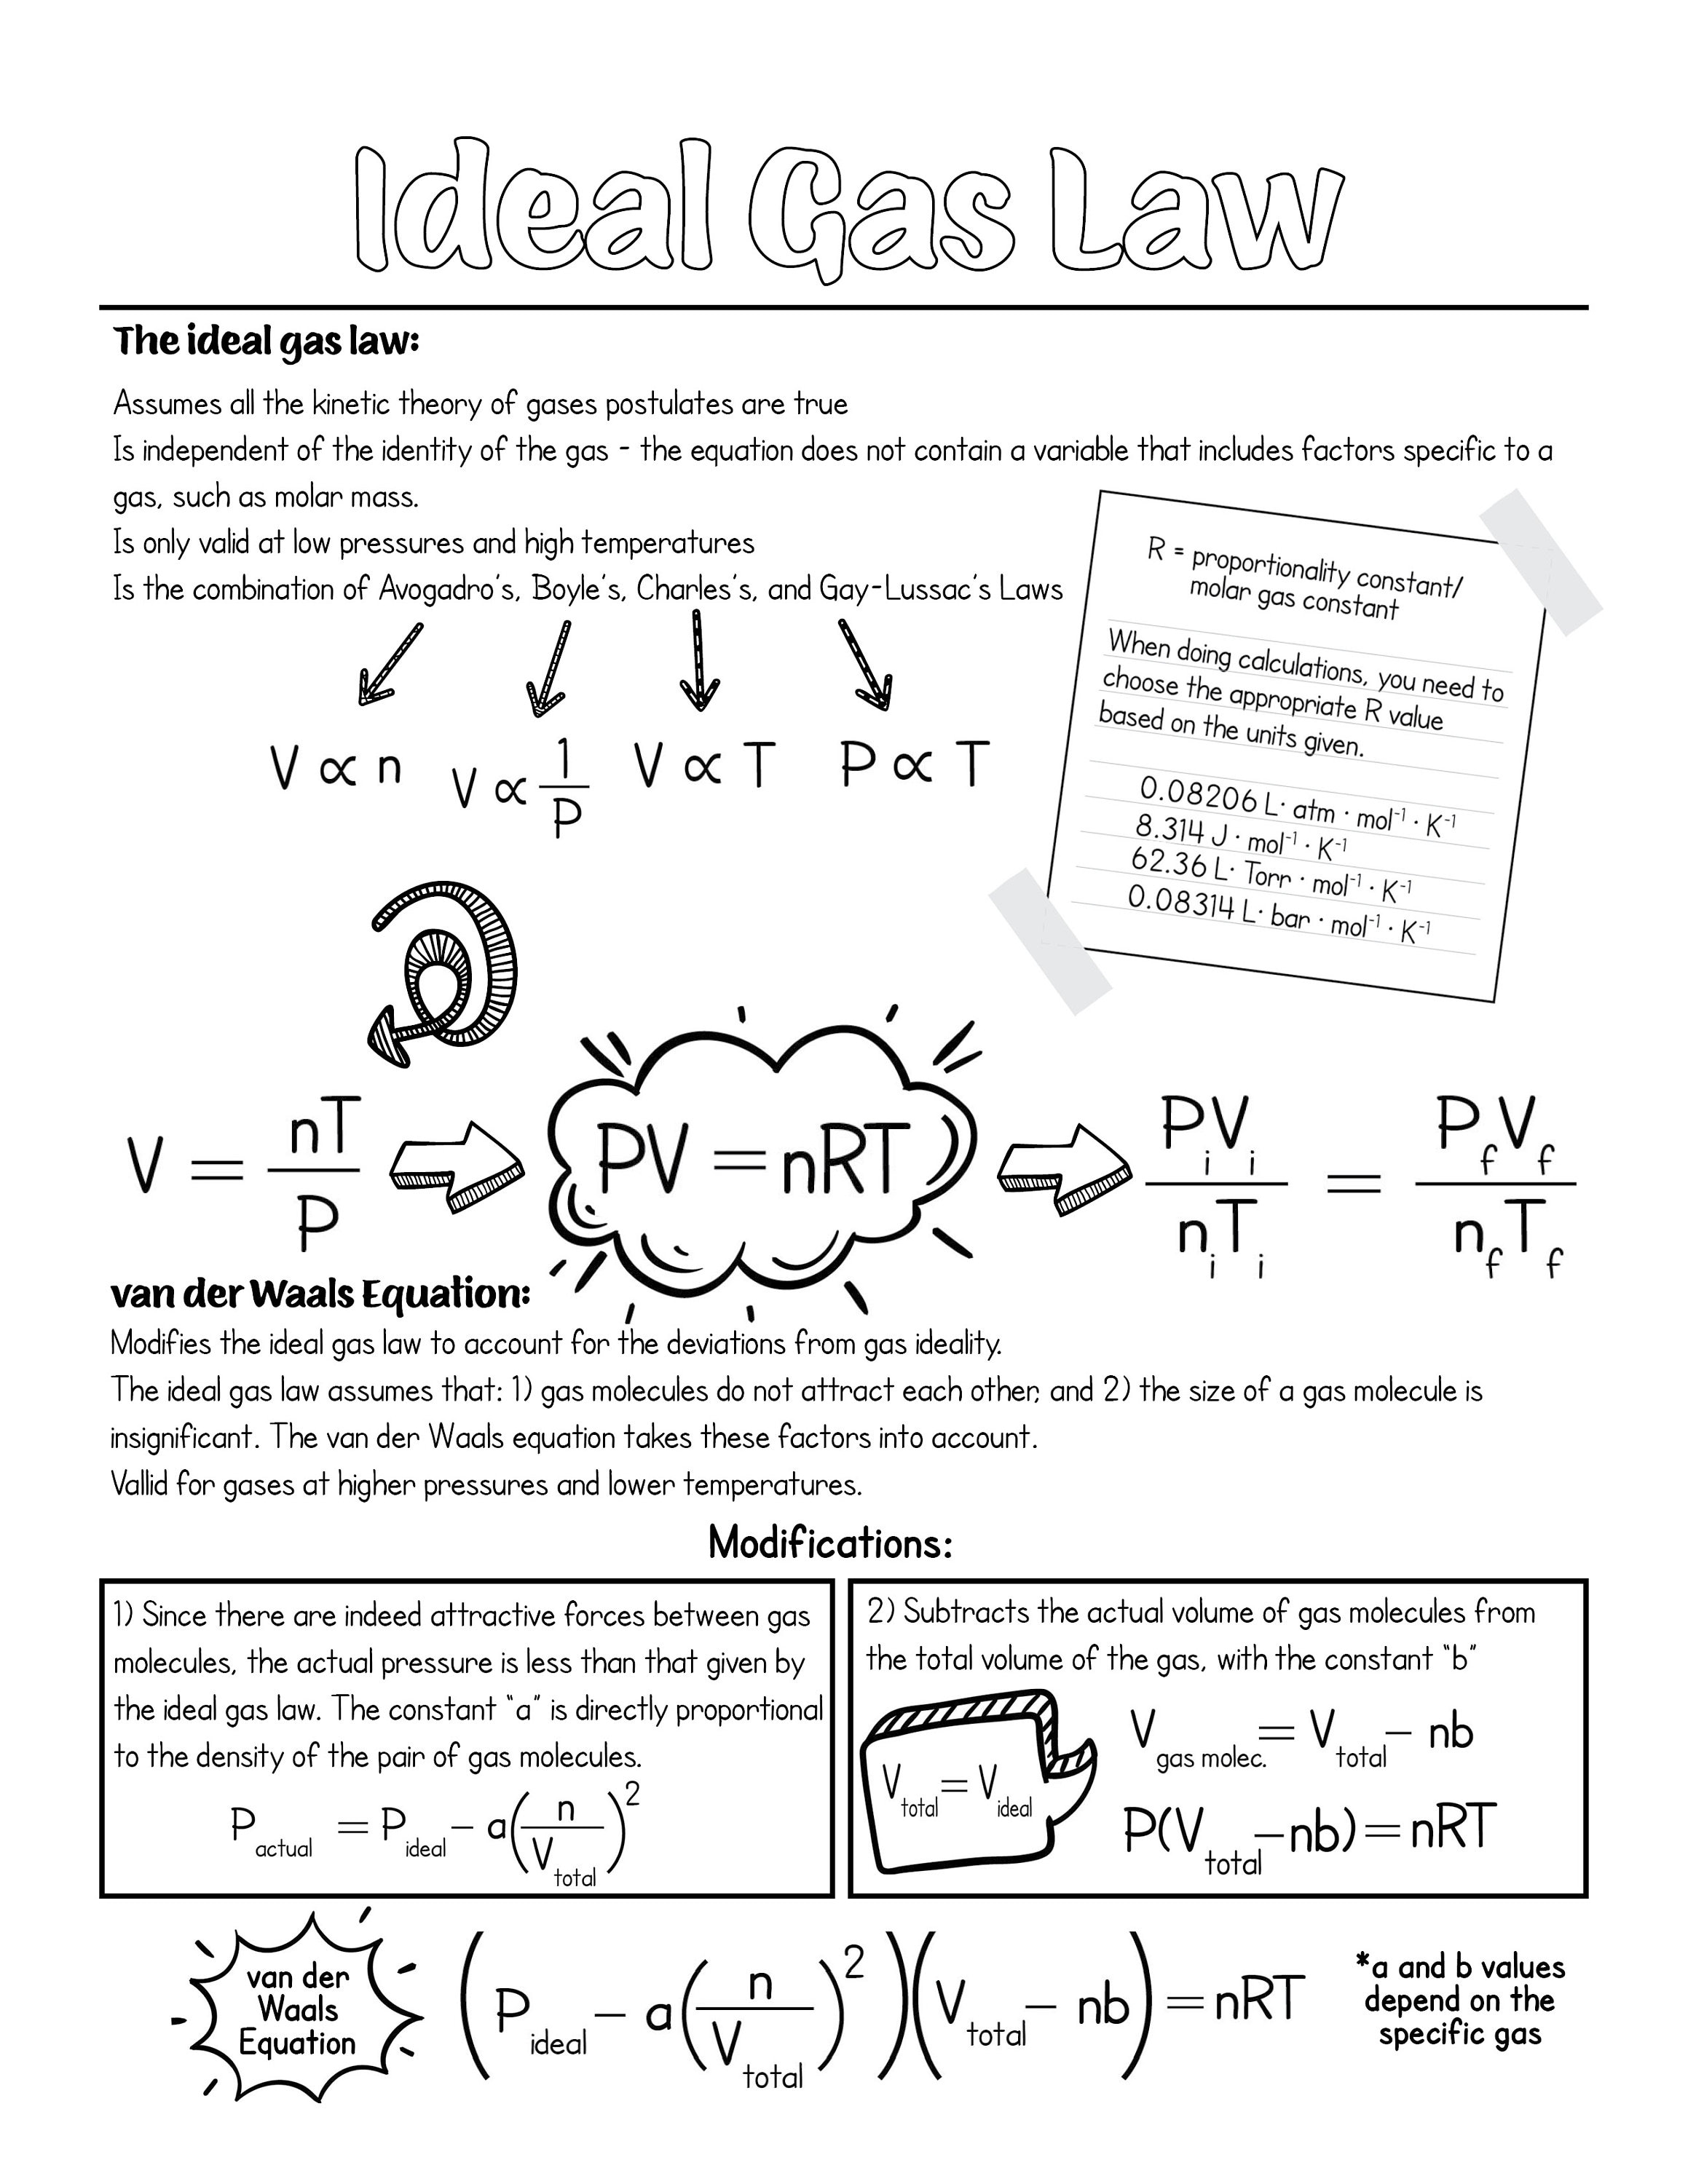 Ideal Gas Law
The ideal gas law:
Assumes all the kinetic theory of gases postulates are true
Is independent of the identity of the gas - the equation does not contain a variable that includes factors specific to a
gas, such as molar mass.
Is only valid at low pressures and high temperatures
Is the combination of Avogadro's, Boyle's, Charles's, and Gay-Lussac's Laws
V ∝ n
V ∝ 1/P
V ∝ T
P ∝ T
R = proportionality constant/
molar gas constant
When doing calculations, you need to
choose the appropriate R value
based on the units given.
0.08206 L· atm · mol⁻¹ · K⁻¹
8.314 J · mol⁻¹ · K⁻¹
62.36 L· Torr · mol⁻¹ · K⁻¹
0.08314 L· bar · mol⁻¹ · K⁻¹
V = nT/P
PV = nRT
PᵢVᵢ/nᵢTᵢ = P_fV_f/n_fT_f
van der Waals Equation:
Modifies the ideal gas law to account for the deviations from gas ideality.
The ideal gas law assumes that: 1) gas molecules do not attract each other, and 2) the size of a gas molecule is
insignificant. The van der Waals equation takes these factors into account.
Vallid for gases at higher pressures and lower temperatures.
Modifications:
1) Since there are indeed attractive forces between gas
molecules, the actual pressure is less than that given by
the ideal gas law. The constant "a" is directly proportional
to the density of the pair of gas molecules.
P_actual = P_ideal − a(n/V_total)²
2) Subtracts the actual volume of gas molecules from
the total volume of the gas, with the constant "b"
V_total = V_ideal
V_gas molec. = V_total − nb
P(V_total − nb) = nRT
van der
Waals
Equation
(P_ideal − a(n/V_total)²)(V_total − nb) = nRT
*a and b values
depend on the
specific gas